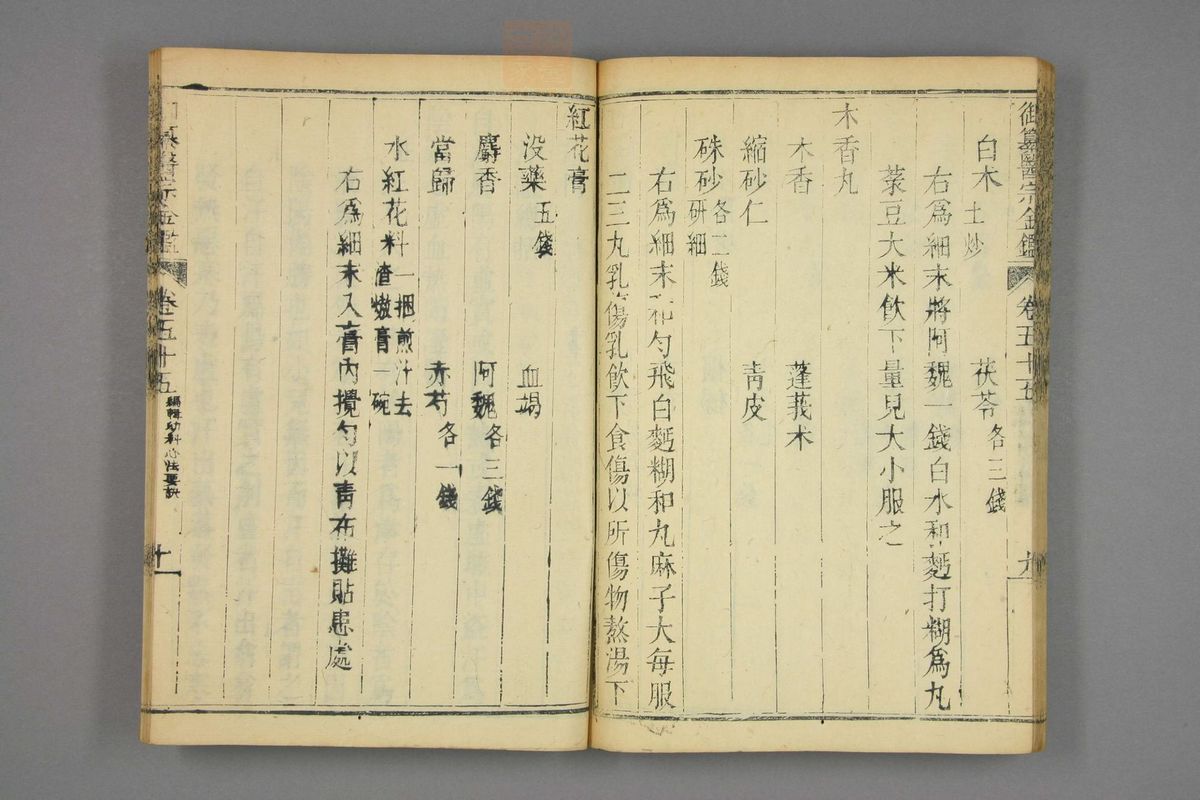 御纂醫宗金鑑 卷五十五 九
白朮土炒 茯苓各三錢
右爲細末將阿魏一錢白水和麪打糊爲丸
菉豆大米飲下量兒大小服之
木香丸
木香 蓬莪朮
縮砂仁 青皮
硃砂各二錢研細
右爲細末和勻飛白麪糊和丸麻子大每服
二三丸乳傷乳飲下食傷以所傷物熬湯下
紅花膏
没藥五錢 血竭
麝香 阿魏各三錢
當歸 赤芍各一錢
水紅花料一捆煎汁去渣熬膏一碗
右爲細末入膏內攪勻以青布攤貼患處
纂醫宗金鑑 卷五十五 編輯幼科心法要訣 十